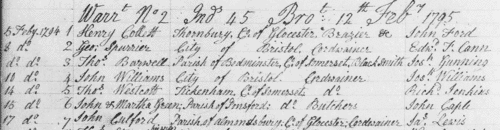 Warrt. No 2 Ind 45 Brot. 12th Feby 1795
5 Feby. 1794 1 Henry Collett Thornbury, C. of Glocester Brazier & John Ford
8 do. 2 Geo. Spurrier City of Bristol Cordwainer Edwd. T. Cann
do. do. 3 Thos. Barwell Parish of Bedminster, C. of Somerset, Black Smith Jos. Gunning
10 do. 4 John Williams City of Bristol Cordwainer Jos. Williams
14 do. 5 Thos. Westcott Tickenham, C. of Somerset, do. Richd. Jenkins
15 do. 6 John & Martha Green; Parish of Pensford; do. Butchers John Cagle
17 do. 7 John Parish of Almondsbury; C. of Glocester; Cordwainer Jas. Lewis